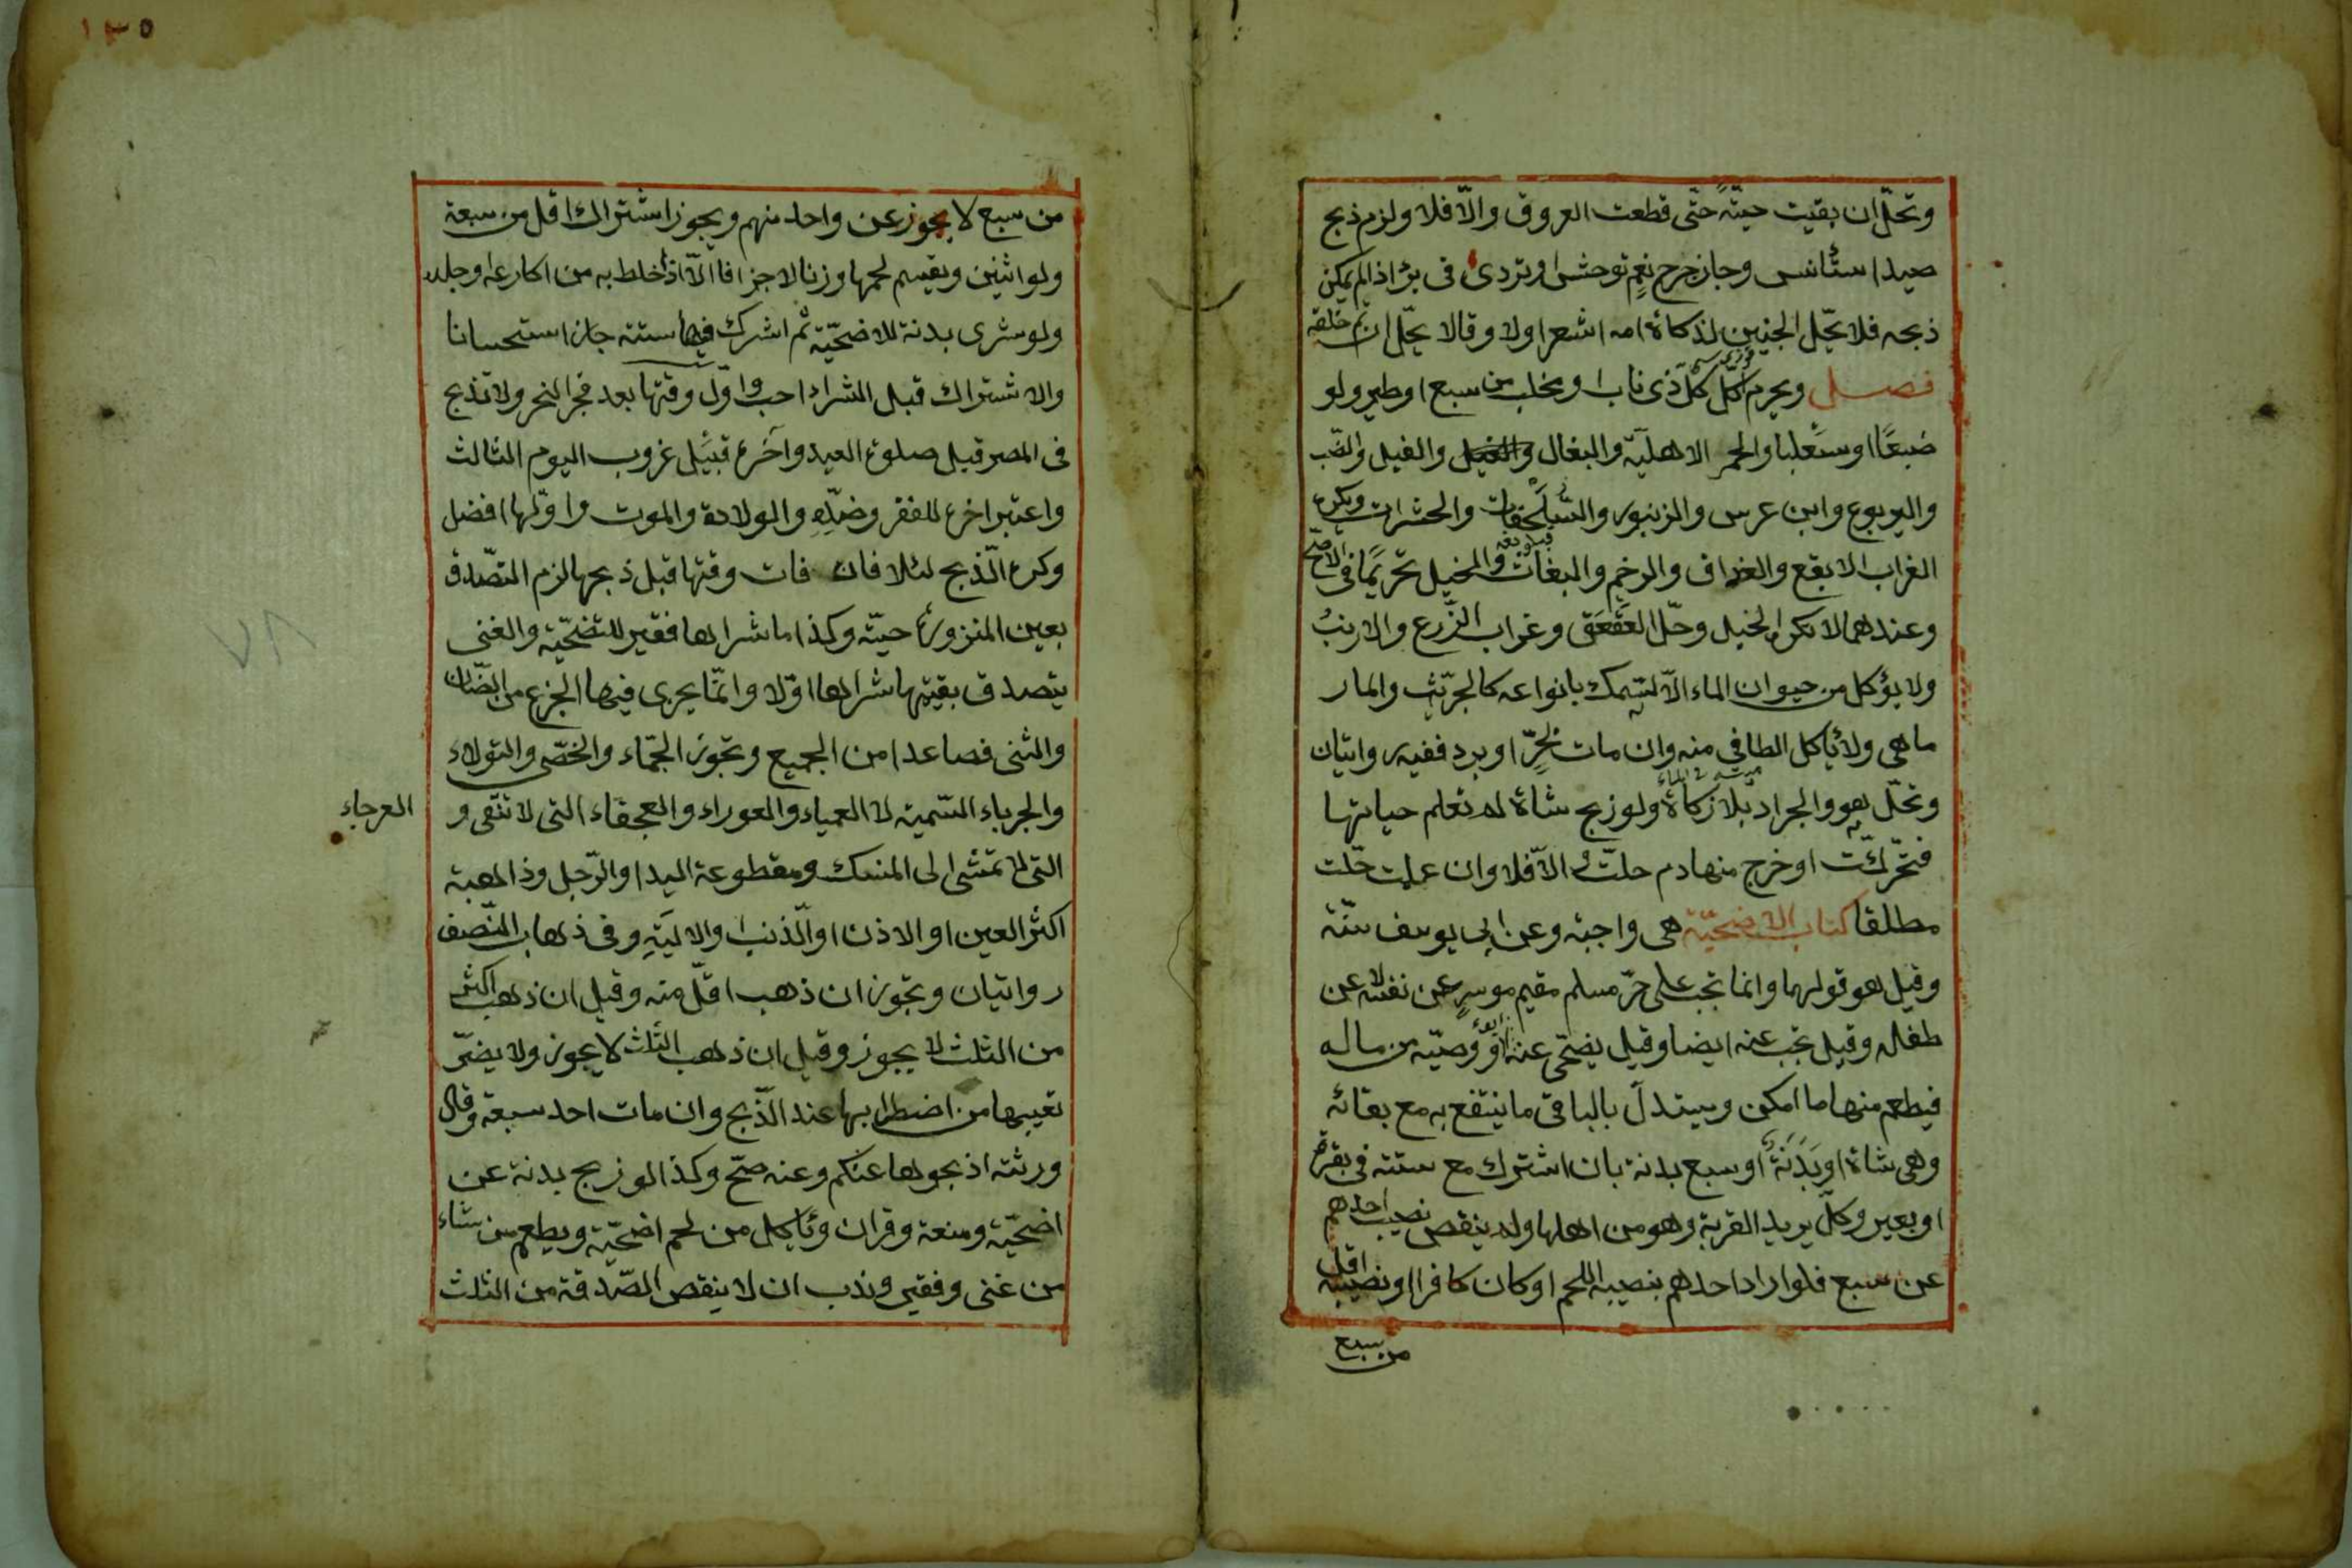 وتحلّ ان بقيت حيّة حتّى قطعت العروق والّا فلا ولزم ذبح
صيد استأنس وجاز جرح نعم توحش او تردى فى بئر اذا لم يمكن
ذبحه فلا يحّل الجنين بذكاة امه اشعر اولا وقالا يحّل ان تم خلقه
فصل ويحرم اكل كلّ ذى ناب او مخلب من سبع او طير ولو
ضبعًا او سعلبا والحمر الاهليّة والبغال والفيل والضّب
واليربوع وابن عرس والزنبور والسّلحفات والحشرات ويكره
الغراب الابقع والغداف والرخم والبغاث والخيل تحريمًا فى الاصّح
وعندهما لا يكره الخيل وحّل العقعق وغراب الزّرع والارنبُ
ولا يؤكل من حيوان الماء الّا السّمك بانواعه كالجرّيث والمار
ماهى ولا يأكل الطافي منه وان مات بحرّ او برد ففيه روايتان
وتحلّ هو والجراد بلا زكاة ولو زبح شاة لم تعلم حياتها
فتحّركت او خرج منها دم حلّت والّا فلا وان علمت حّلت
مطلقا كتاب الاضحيّة هى واجبة وعن ابى يوسف سنّة
وقيل هو قولهما وانما تجب على حرّ مسلم مقيم موسرٍ عن نفسه لا عن
طفله وقيل تجب عنه ايضا وقيل يضحّى عنه ابوه او وصيّه من ماله
فيطعم منها ما امكن ويستدلّ بالباقى ما ينتفع به مع بقائه
وهى شاة او بَدَنَةٌ او سبع بدنة بان اشترك مع ستة فى بقرة
او بعير وكلّ يريد القربة وهو من اهلها ولم ينقص نصيب احدهم
عن سبع فلو اراد احدهم بنصيبه اللحم او كان كافرا او نصيبه اقل
من سبع
١٣٥
من سبع لا يجوز عن واحد منهم ويجوز اشتراك اقل من سبعة
ولو اثنين ويقسم لحمها وزنا لا جزافا الّا اذا خلط به من اكارعه او جلده
ولو شرى بدنة للاضحيّة ثم اشرك فيها ستة جاز استحسانا
والاشتراك قبل الشراء احب واوّل وقتها بعد فجر النحر ولا تذبح
فى المصر قبل صلوة العيد وآخره قبيل غروب اليوم الثالث
واعتبر اخره للفقر وضدّه والولادة والموت واوّلها افضل
وكره الّذبح ليلا فان فات وقتها قبل ذبحها لزم التصّدق
بعين المنزورة حيّة وكذا ما شراها فقير للتضحّية والغنى
يتصدق بقيتها شراها اوّلا وانمّا يجرى فيها الجزع من الضّان
والثنى فصاعدا من الجميع وتجوز الجمّاء والخصّى والثولاء
والجرباء السّمينة لا العمياء والعوراء والعجفاء التى لا تنقى و
العرجاء
التى لا تمشى الى المنسك ومقطوعة اليد او الرّجل وذاهبة
اكثر العين او الاذن او الّذنب او الاليَةِ وفى ذهاب النّصف
روايتان وتجوز ان ذهب اقلّ منه وقيل ان ذهب اكثر
من الثلث لا يجوز وقيل ان ذهب الثلث لا يجوز ولا يضرّ
تعيبها من اضطرابها عند الّذبح وان مات احد سبعة وقال
ورثته اذبحوها عنكم وعنه صحّ وكذا لو زبح بدنة عن
اضحيّة ومتعة وقران ويأكل من لحم اضحّية ويطعم من شاء
من غنى وفقير وندب ان لا ينقص الصّدقة من الثلث